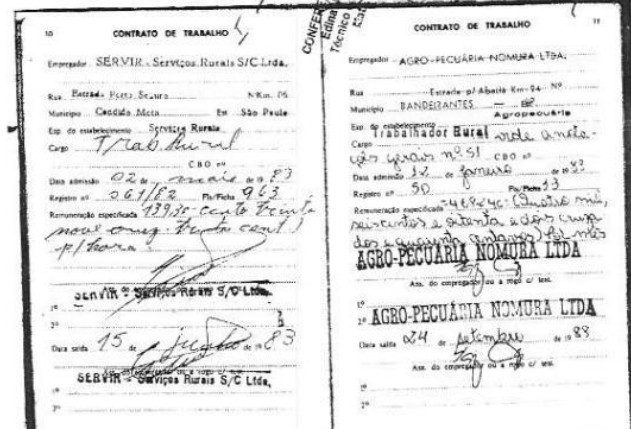 CONFER
Edina
Técnico
10
CONTRATO DE TRABALHO
Empregador SERVIR - Serviços Rurais S/C Ltda.
Rua Estrada Porto Seguro Nº Km. 06
Município Candido Mota Est. São Paulo
Esp. do estabelecimento Serviços Rurais
Cargo Trab. Rural
CBO nº
Data admissão 02 de maio de 19 83
Registro nº 061/82 Fls/Ficha 963
Remuneração especificada 139,30 cento trinta
nove cruz. trinta cent.)
p/hora
SERVIR - Serviços Rurais S/C Ltda.
1º
2º
Data saída 15 de junho de 19 83
Ass. do empregador ou a rogo c/ test.
SERVIR - Serviços Rurais S/C Ltda.
1º
2º
11
CONTRATO DE TRABALHO
Empregador AGRO-PECUÁRIA NOMURA LTDA.
Rua Estrada p/ Abatiá Km-04 Nº
Município BANDEIRANTES - PR
Agropecuária
Esp. do estabelecimento
Trabalhador Rural vide anota-
Cargo
ções gerais nº 51 CBO nº
Data admissão 12 de janeiro de 19
Registro nº 50 Fls/Ficha 33
Remuneração especificada 4682,40 (Quatro mil,
seiscentos e oitenta e dois cruza
dos e quarenta centavos) Por mês
AGRO-PECUÁRIA NOMURA LTDA
Ass. do empregador ou a rogo c/ test.
1º
2º AGRO-PECUÁRIA NOMURA LTDA
Data saída 24 de setembro de 19 88
Ass. do empregador ou a rogo c/ test.
1º
2º